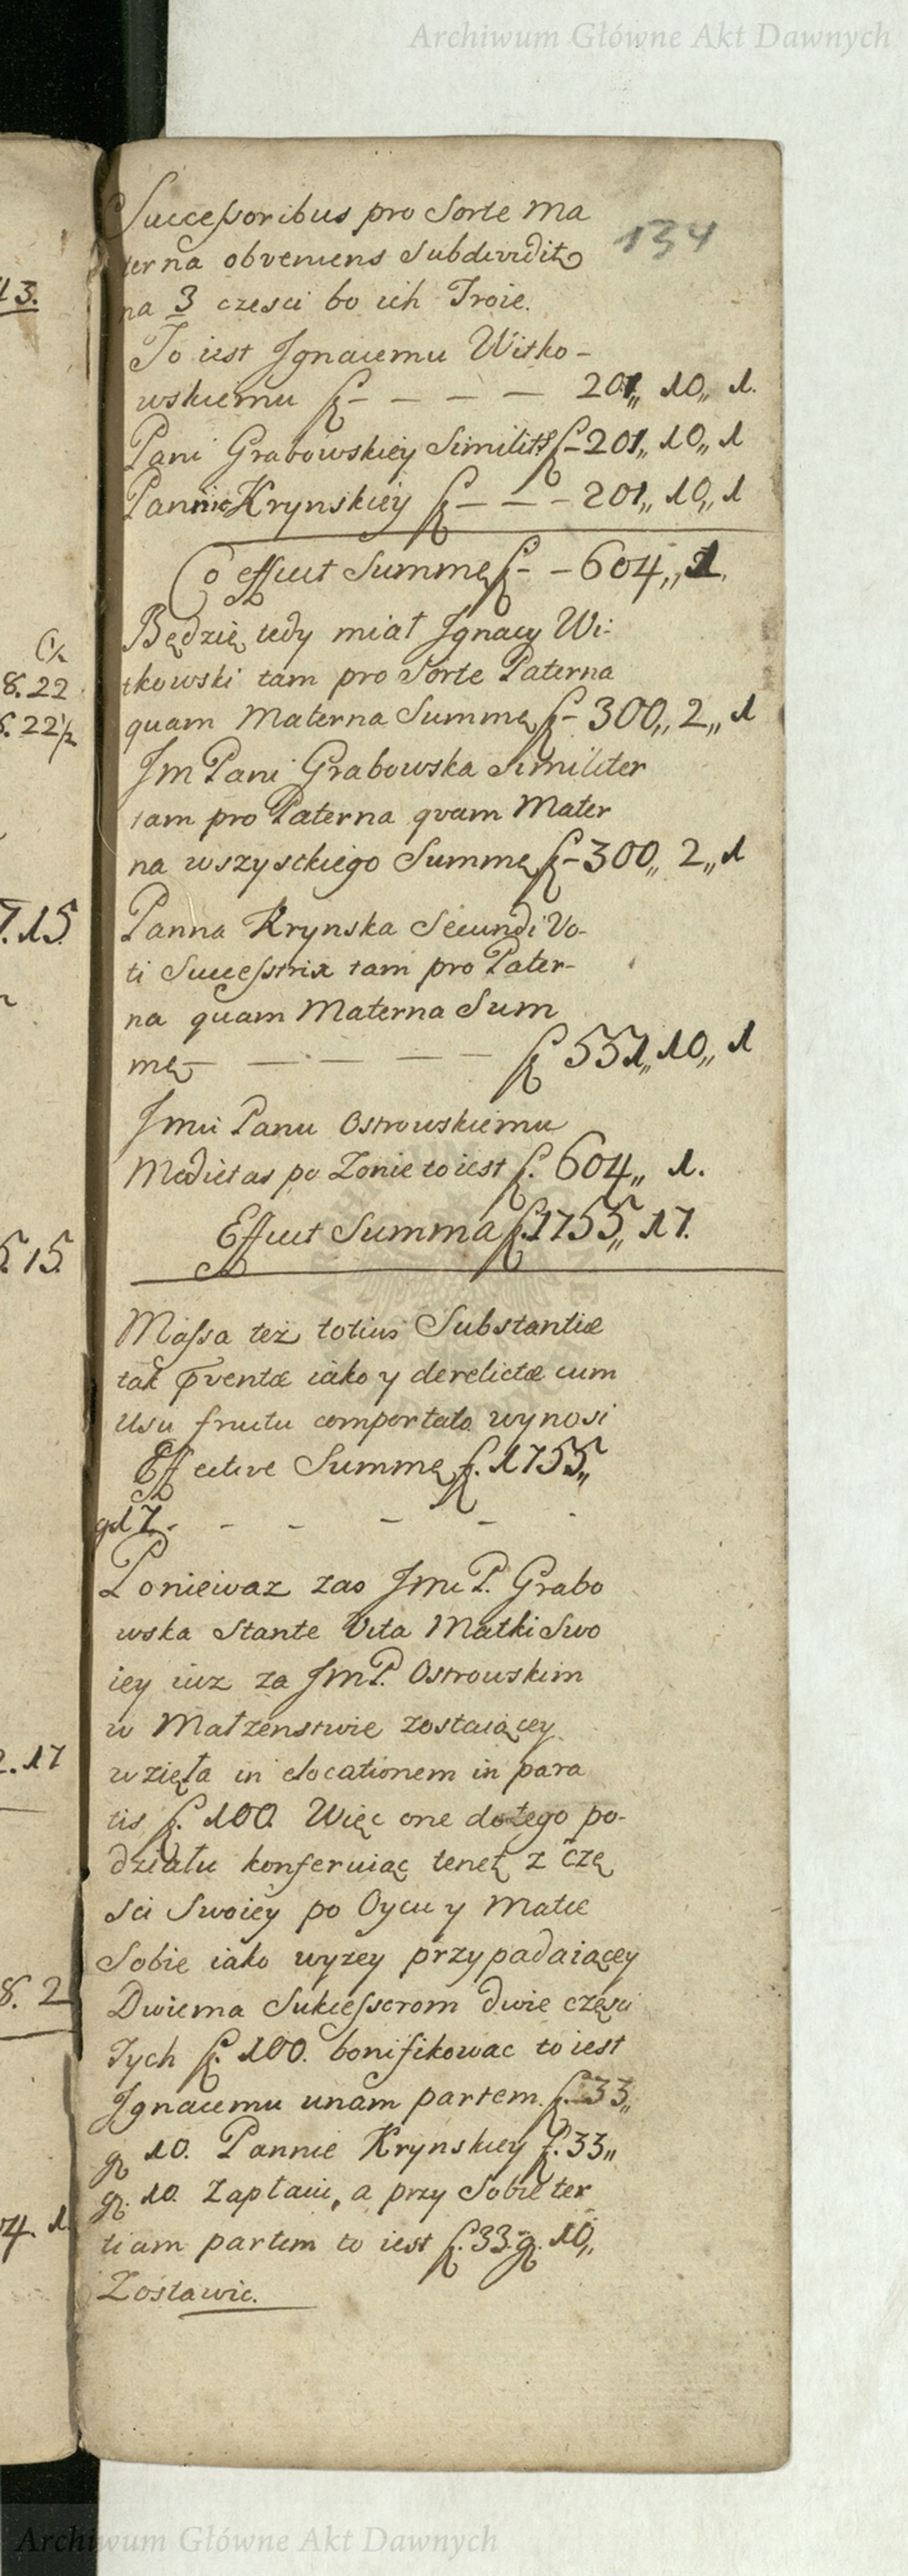 Archiwum Główne Akt Dawnych
134
Successoribus pro Sorte Ma
terna obveniens Subdividit
na 3 czesci bo ich Troie.
To iest Ignacemu Witko-
wskiemu f - - - - 201,, 10,, 1.
Pani Grabowskiey Simili f - 201,, 10,, 1
Pannie Krynskiey f - - - 201,, 10,, 1
Co effucit Summę f - - 604,, 1.
Będzię tedy miał Ignacy Wi-
tkowski tam pro Sorte Paterna
quam Materna Summę f - 300,, 2,, 1
Jm Pani Grabowska similiter
tam pro Paterna qvam Mater
na wszystkiego Summę f - 300,, 2,, 1
Panna Krynska Secundi Vo-
ti Successtrix tam pro Pater-
na quam Materna Sum
mę - - - - - f 551,, 10,, 1
Jmći Panu Ostrowskiemu
Medietas po Zonie to iest f. 604,, 1.
Effucit Summa f. 1755,, 17.
Massa tez totius Substantiæ
tak iako y derelictæ cum
Usu fructu comportato wynosi
Effective Summę f. 1755,,
gd 17. - - - - -
Poniewaz zas Jmć P. Grabo
wska Stante Vita Matki Swo
iey iuz za JmP. Ostrowskim
w Małzenstwie zostaiącey
wzięła in elocationem in para
tis f. 100. Więc one do tego po-
działu konferuiąc tenet z Czę
sci Swoiey po Oycu y Matce
Sobie iako wyzey przypadaiącey
Dwiema Sukcessorom dwie częsci
Tych f. 100. bonifikowac to iest
Ignacemu unam partem f. 33,,
gr 10. Pannie Krynskiey f. 33,,
gr. 10. Zapłacic, a przy Sobie ter
tiam partem to iest f. 33. g. 10,,
Zostawic.
13.
8. 22
22½
7. 15
5. 15.
2. 17
8. 2
04. 1.
Archiwum Główne Akt Dawnych